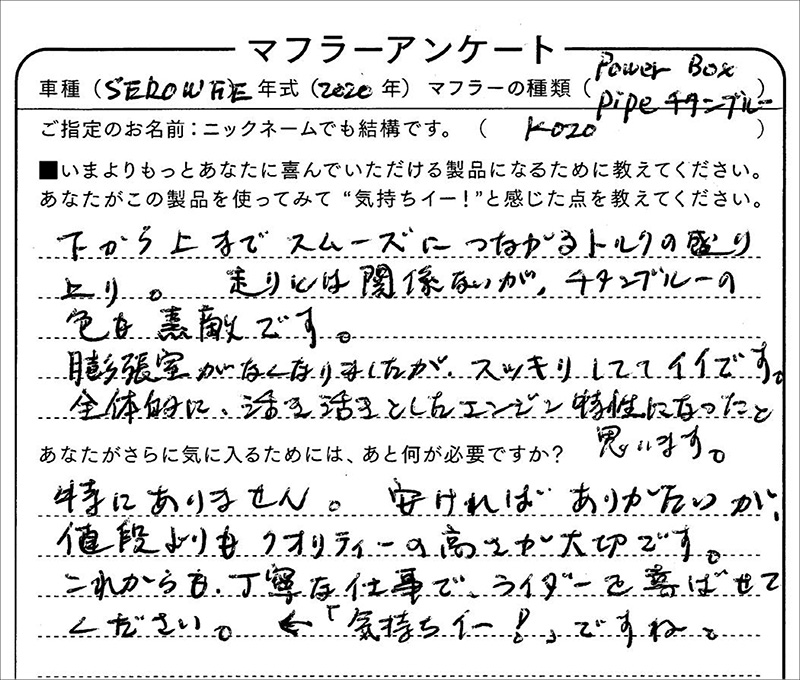 マフラーアンケート
車種（SEROW FIE 年式（2020 年）マフラーの種類（Power Box Pipe チタンブルー）
ご指定のお名前：ニックネームでも結構です。（ KOZO ）
■いまよりもっとあなたに喜んでいただける製品になるために教えてください。
あなたがこの製品を使ってみて“気持ちイー！”と感じた点を教えてください。
下から上までスムーズにつながるトルクの盛り
上り。 走りには関係ないが、チタンブルーの
色も素敵です。
膨張室がなくなりましたが、スッキリしててイイです。
全体的に、活き活きとしたエンジン特性になったと
思います。
あなたがさらに気に入るためには、あと何が必要ですか？
特にありません。 安ければありがたいが、
値段よりもクオリティーの高さが大切です。
これからも、丁寧な仕事で、ライダーを喜ばせて
ください。 ←「気持ちイー！」ですね。